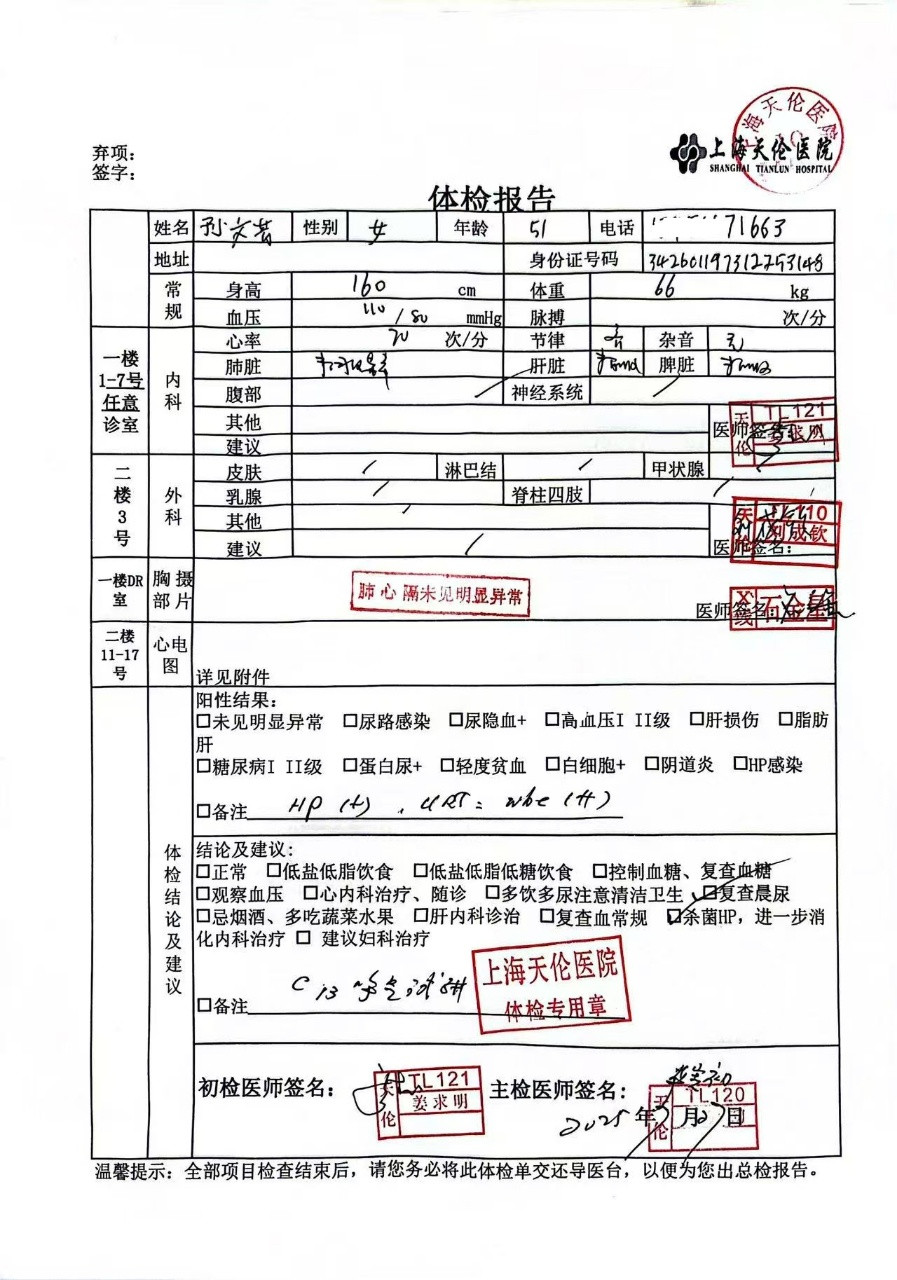 弃项：
签字：
上海天伦医院
SHANGHAI TIANLUN HOSPITAL
上海天伦医院
体检报告
姓名 孙 性别 女 年龄 51 电话 71663
地址 身份证号码 342601197312253148
常规 身高 160 cm 体重 66 kg
血压 110/80 mmHg 脉搏 次/分
一楼1-7号任意诊室 内科 心率 70 次/分 节律 齐 杂音 无
肺脏 肝脏 脾脏
腹部 / 神经系统 /
其他
建议 医师签名: 天伦 TL121 姜求明
二楼3号 外科 皮肤 / 淋巴结 / 甲状腺
乳腺 / 脊柱四肢 /
其他
建议 / 医师签名: 天伦 TL110 刘成钦
一楼DR室 胸部摄片 肺心隔未见明显异常 医师签名: X线 石金星
二楼11-17号 心电图 详见附件
体检结论及建议
阳性结果：
□未见明显异常 □尿路感染 □尿隐血+ □高血压I II级 □肝损伤 □脂肪
肝
□糖尿病I II级 □蛋白尿+ □轻度贫血 □白细胞+ □阴道炎 □HP感染
□备注 HP (+) , URT: wbc (++)
结论及建议:
□正常 □低盐低脂饮食 □低盐低脂低糖饮食 □控制血糖、复查血糖
□观察血压 □心内科治疗、随诊 □多饮多尿注意清洁卫生、☑复查晨尿
□忌烟酒、多吃蔬菜水果 □肝内科诊治 □复查血常规 ☑杀菌HP，进一步消
化内科治疗 □ 建议妇科治疗
□备注 C13 呼气试验
上海天伦医院
体检专用章
初检医师签名： 天伦 TL121 姜求明 主检医师签名： 天伦 TL120
2025年 月27日
温馨提示：全部项目检查结束后，请您务必将此体检单交还导医台，以便为您出总检报告。